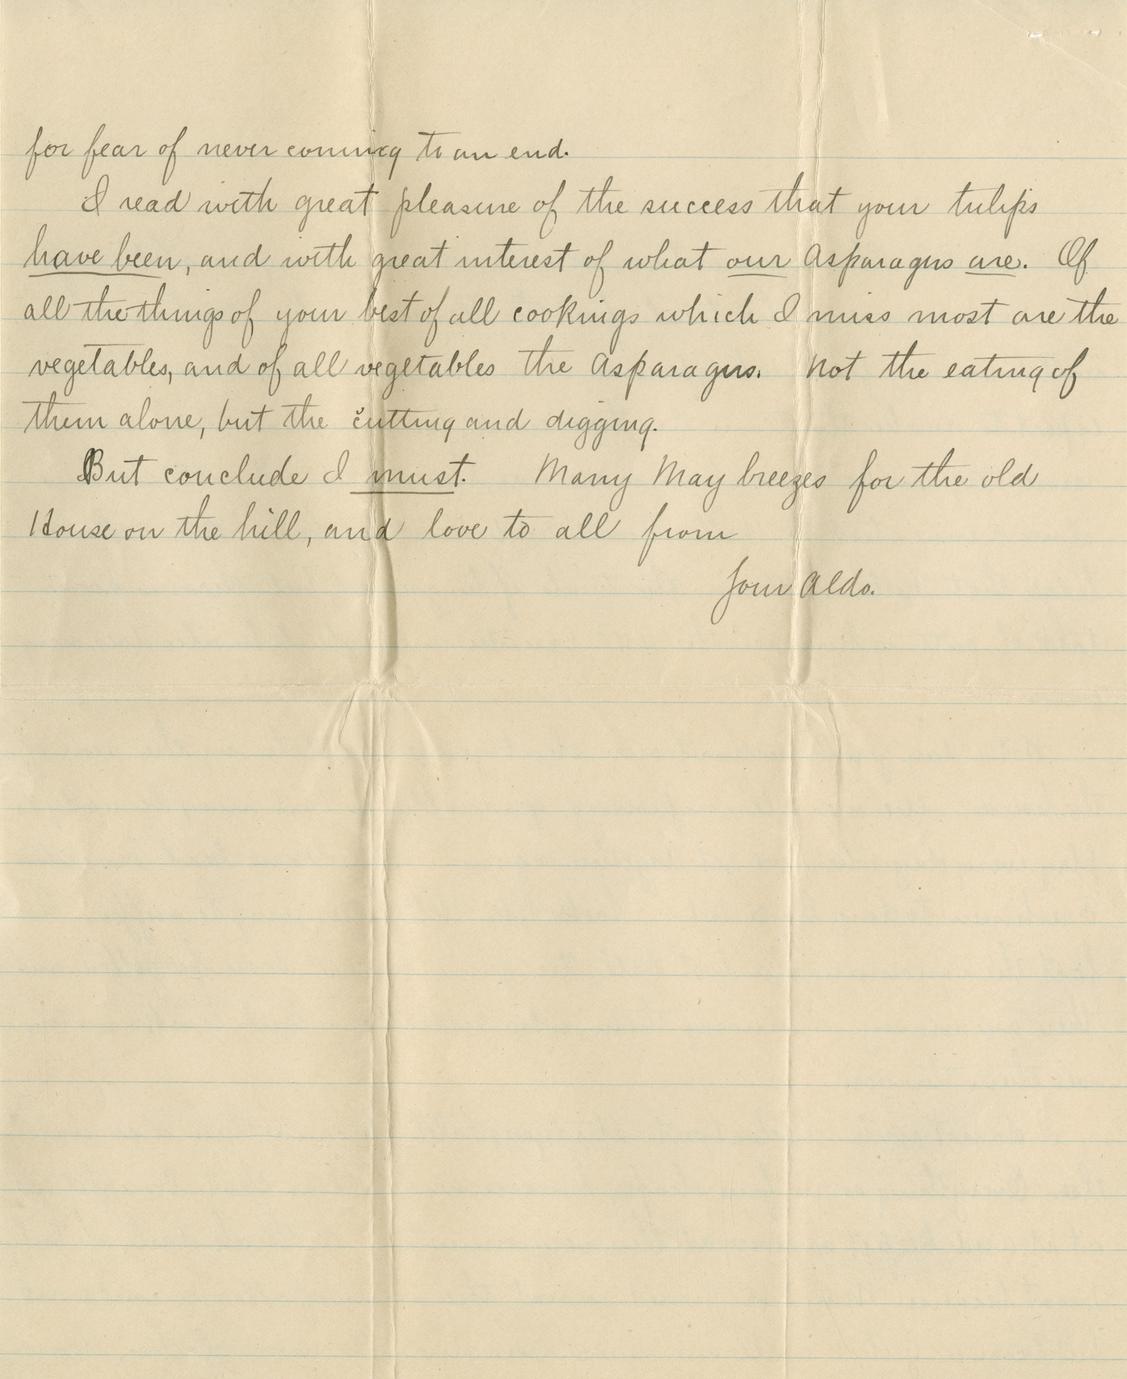 for fear of never coming to an end.
I read with great pleasure of the success that your tulips
have been, and with great interest of what our Asparagus are. Of
all the things of your best of all cookings which I miss most are the
vegetables, and of all vegetables the Asparagus. Not the eating of
them alone, but the cutting and digging.
But conclude I must. Many May breezes for the old
House on the hill, and love to all from
Your Aldo.